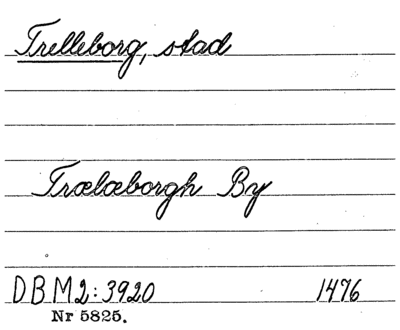 Trelleborg, stad
Trælæborgh By
DBM2:3920 1476
Nr 5825.